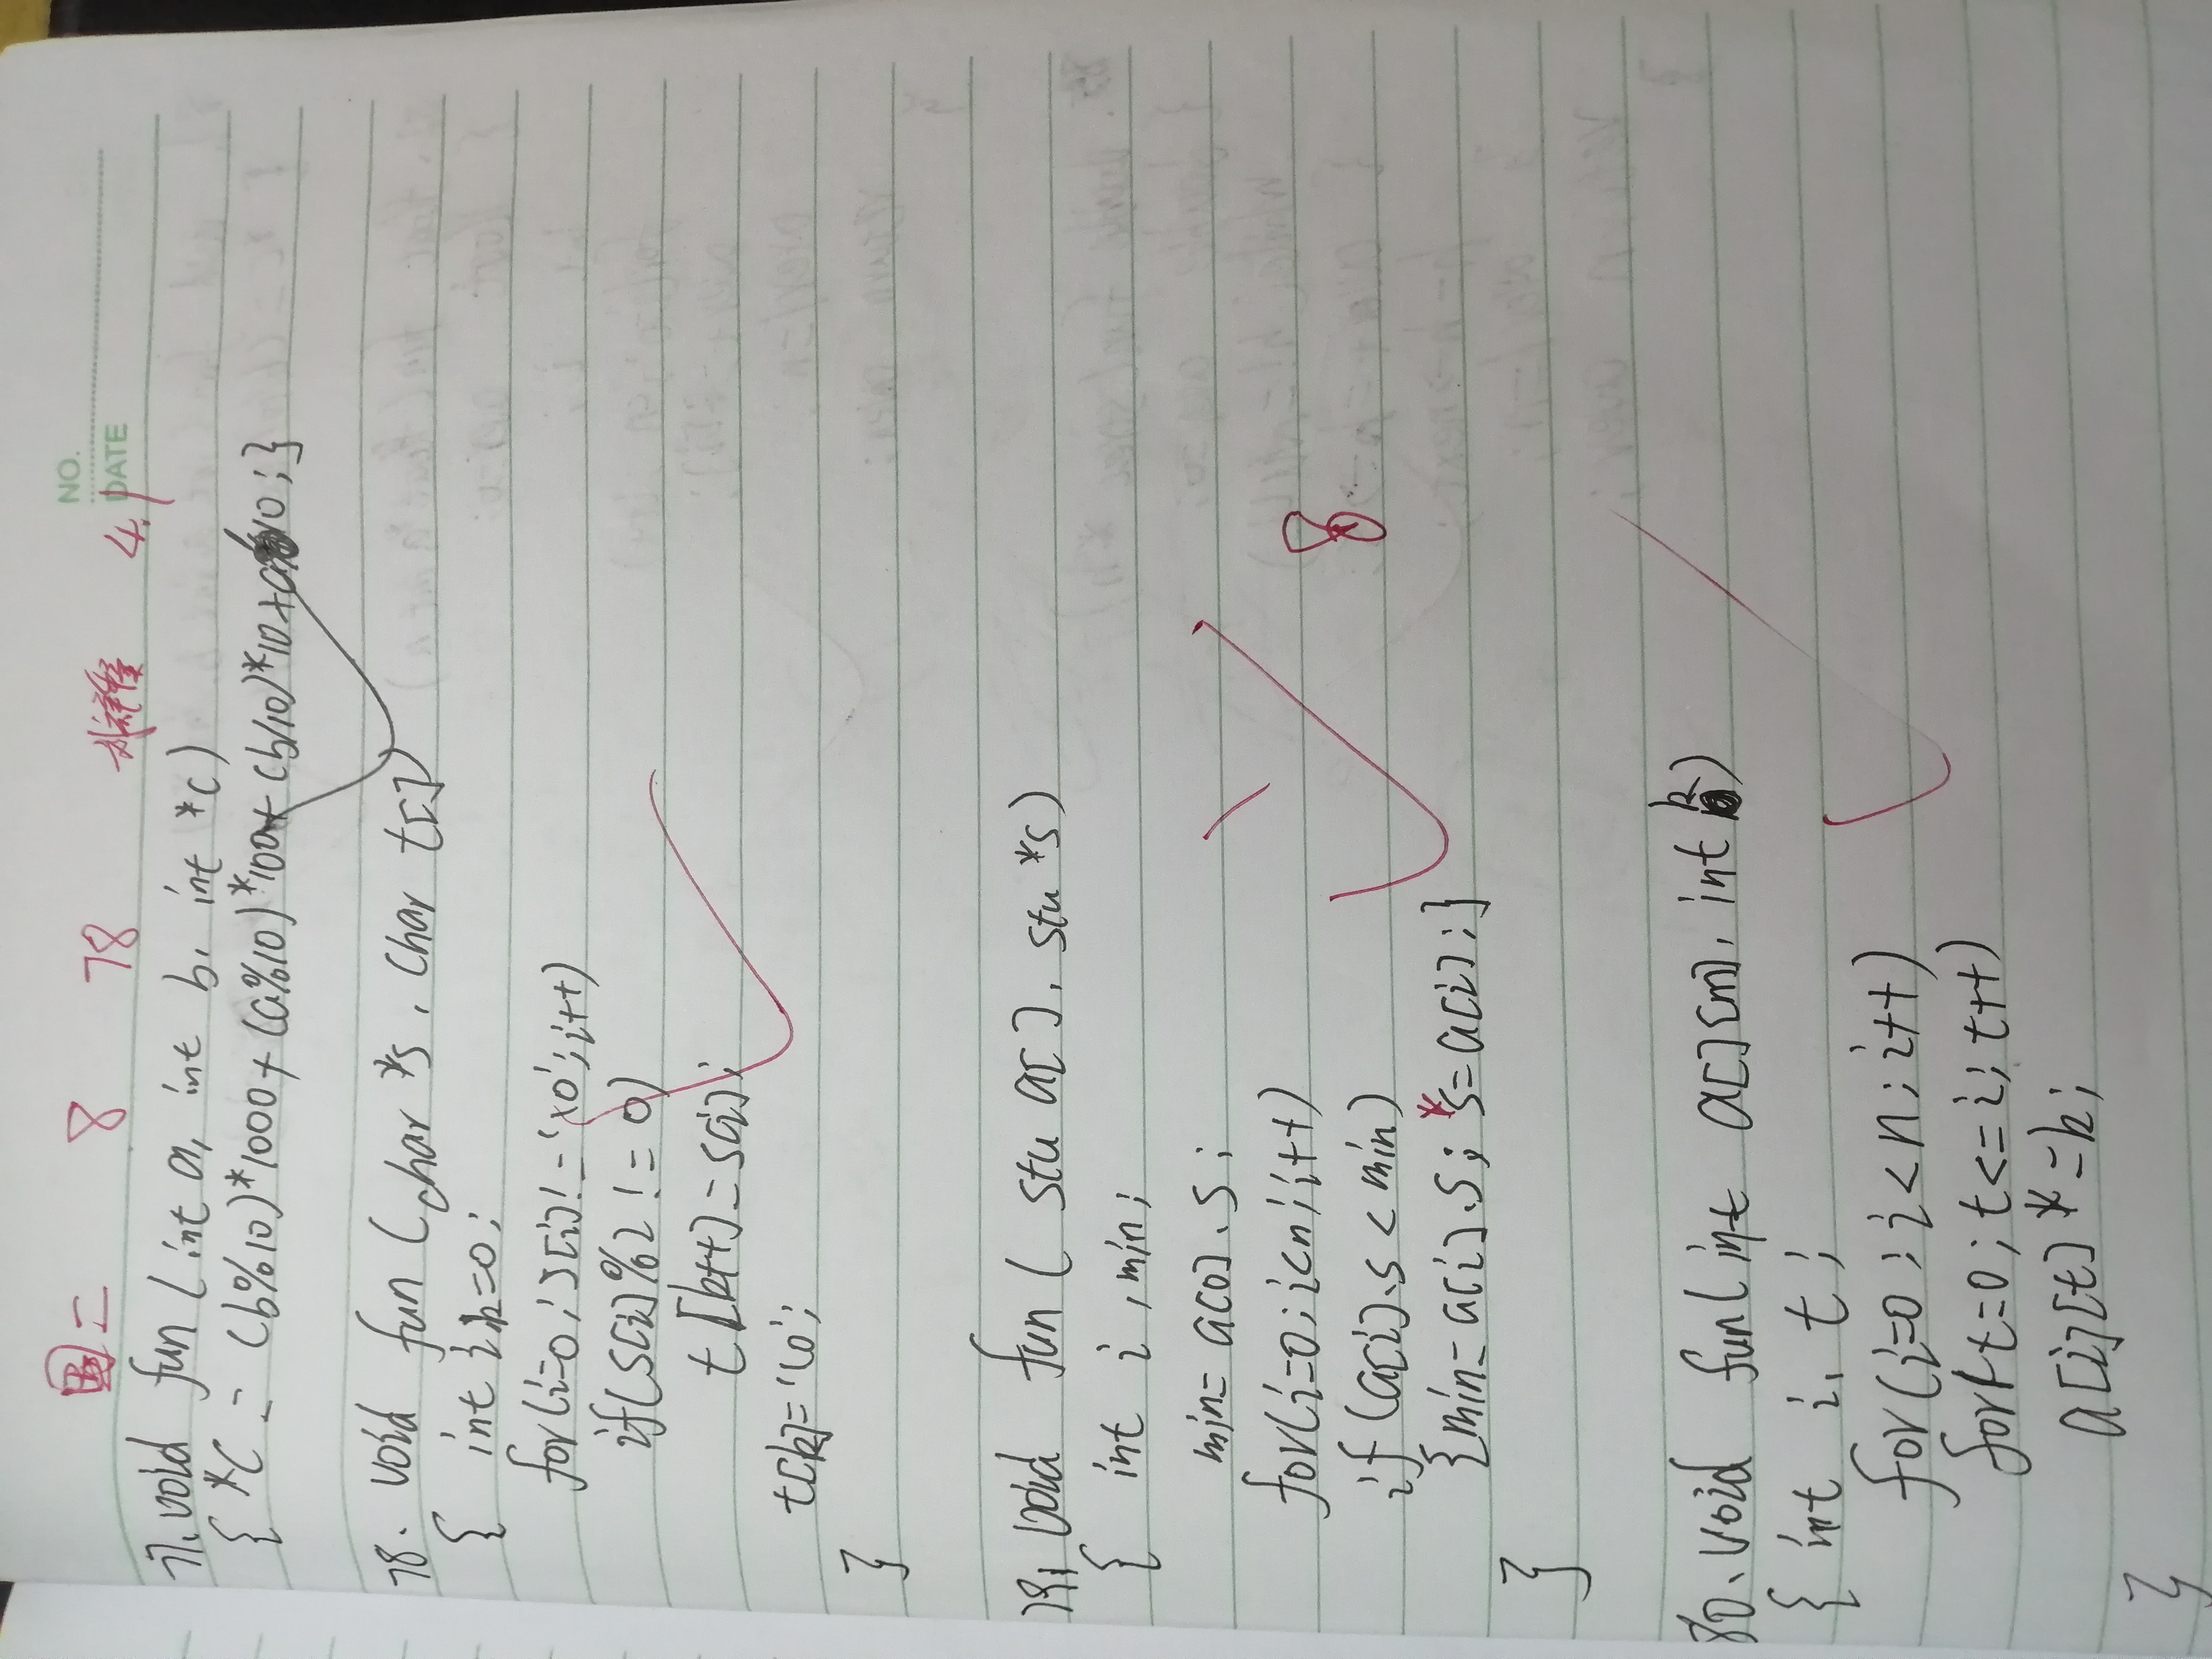 NO.
DATE
周二 8 78 4.1
77. void fun (int a, int b, int *c)
{ *c = (b%10)*1000+(a%10)*100+(b/10)*10+a/10;}
78. void fun (char *s, char t[])
{ int i, k=0;
for(i=0;s[i]!='\0';i++)
if(s[i]%2!=0)
t[k++]=s[i];
t[k]='\0';
}
79. void fun ( stu a[], stu *s)
{ int i,min;
min=a[0].s;
for(i=0;i<n;i++)
if (a[i].s<min)
{min=a[i].s; *s=a[i];}
}
8
80. void fun(int a[][m], int k)
{ int i, t;
for(i=0;i<n;i++)
for(t=0;t<=i;t++)
a[i][t]*=k;
}